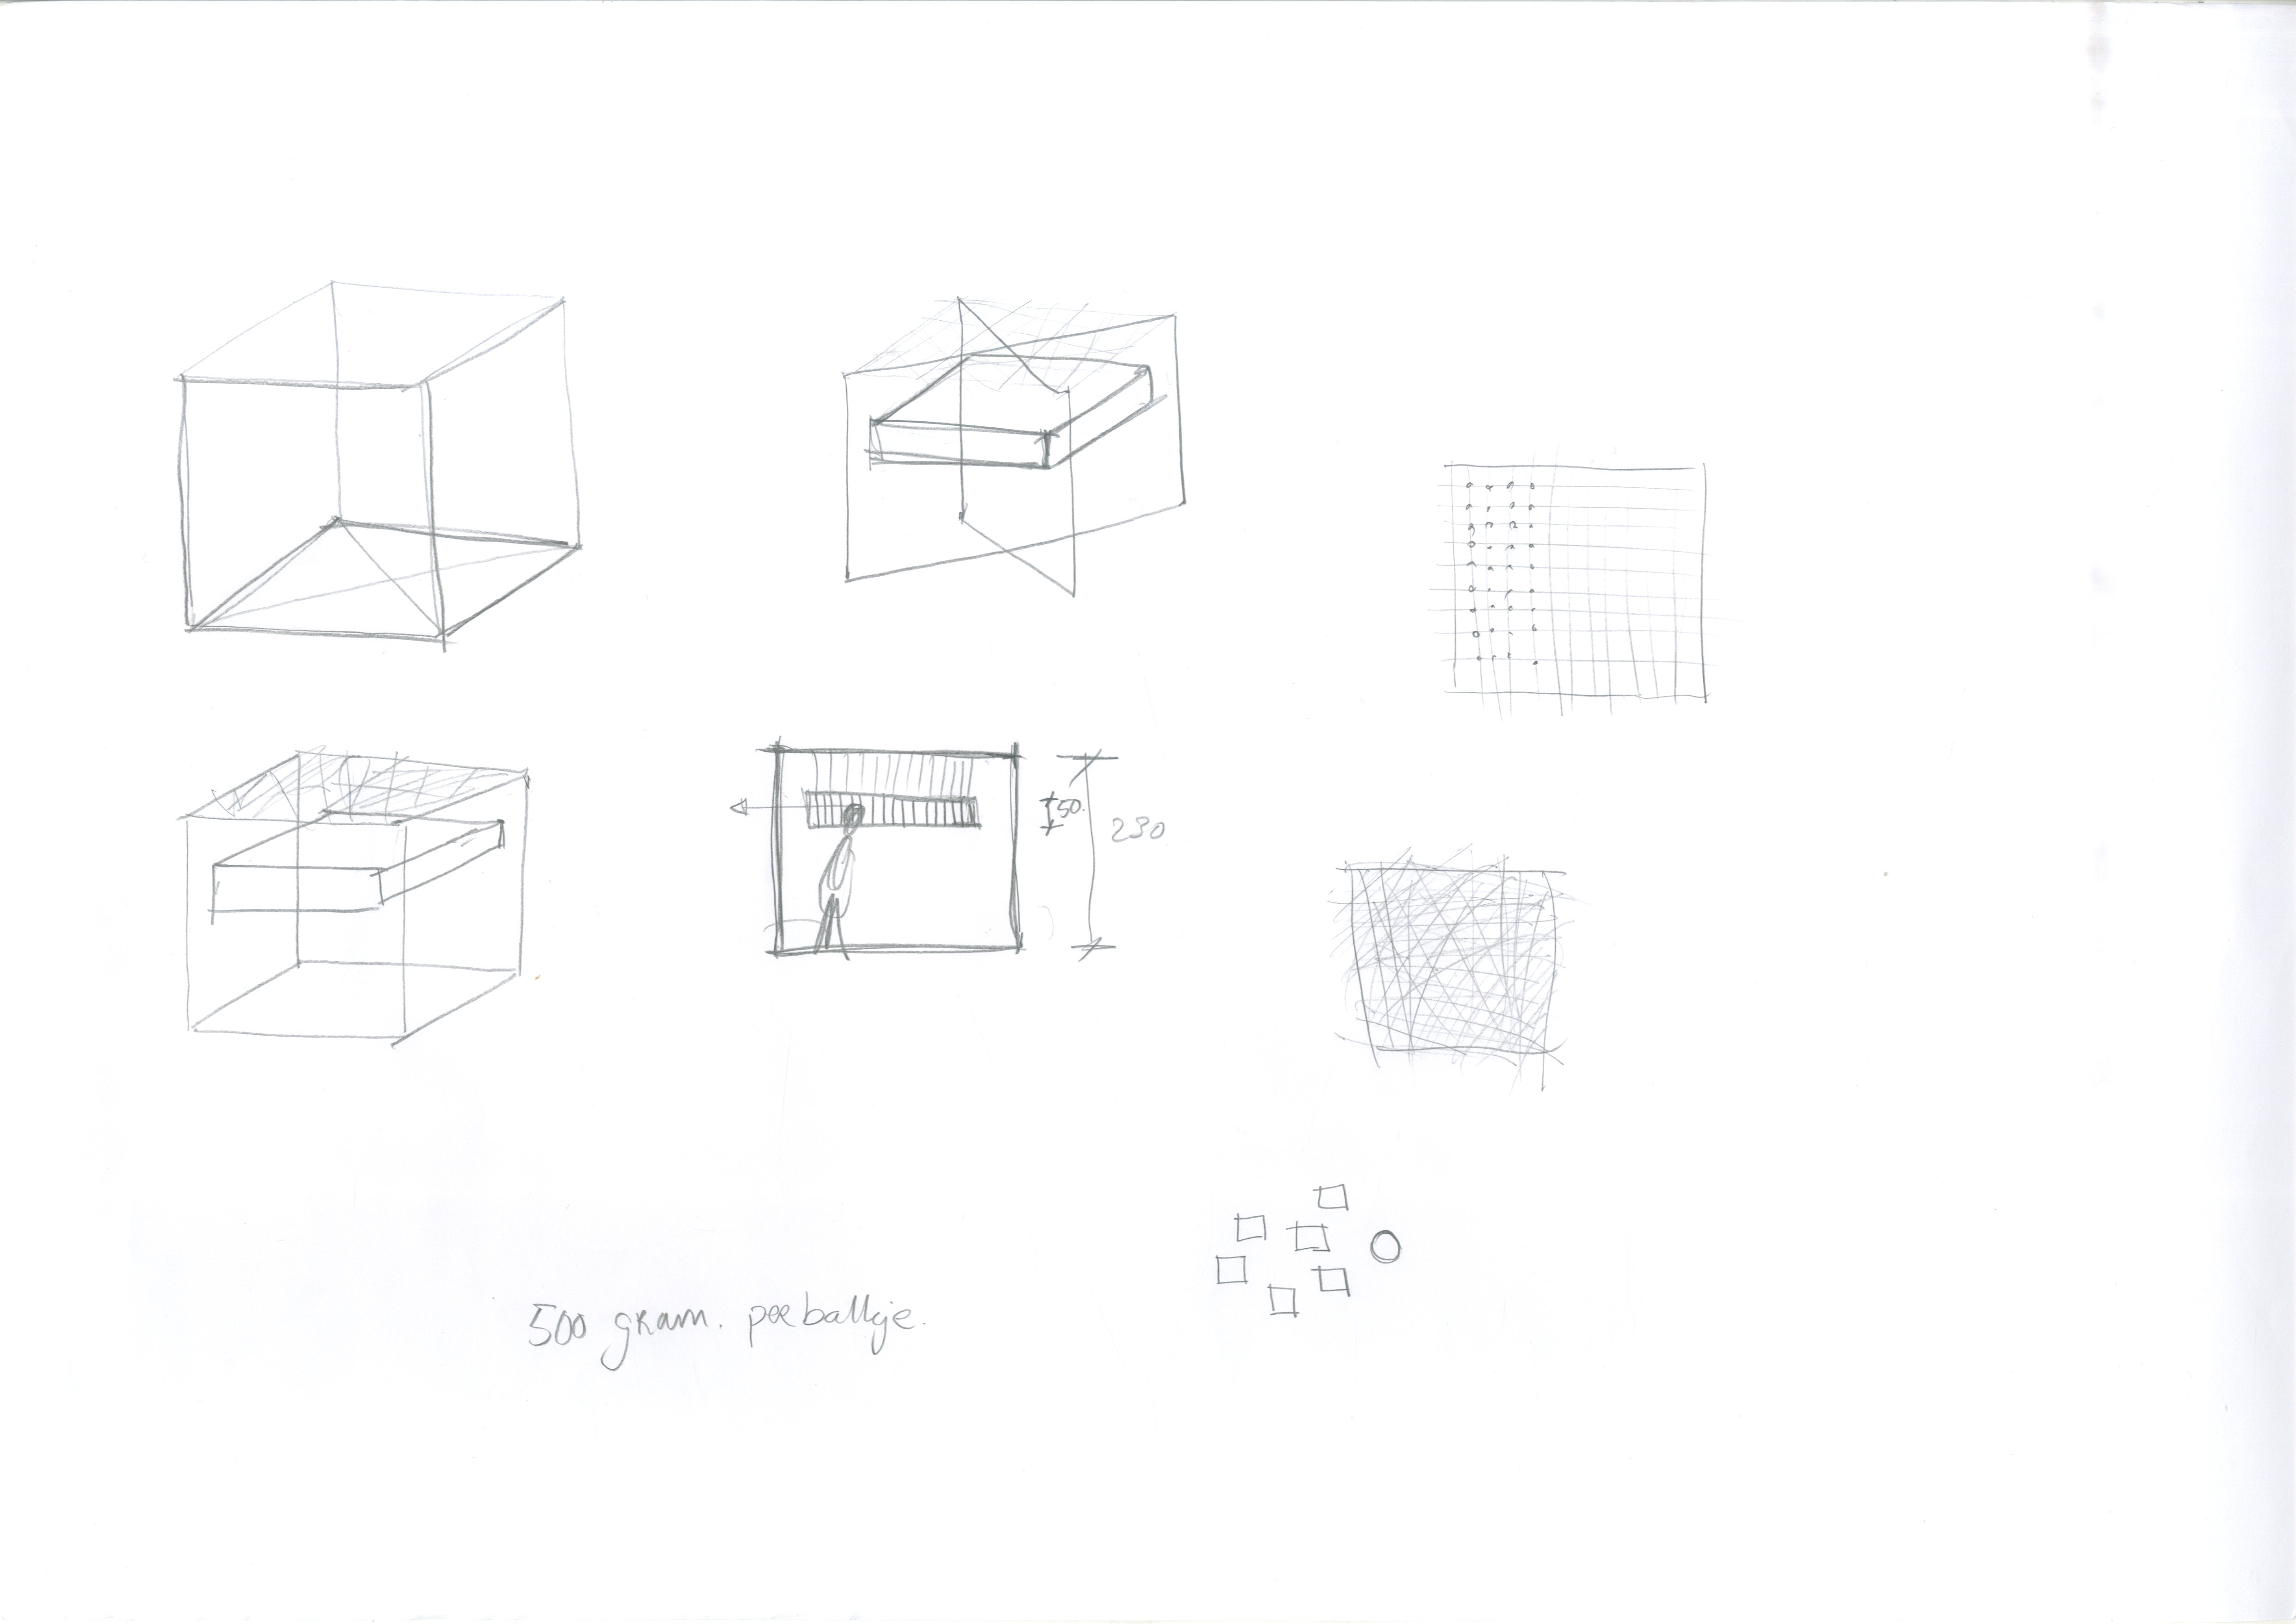 50.
230
500 gram. per balkje.